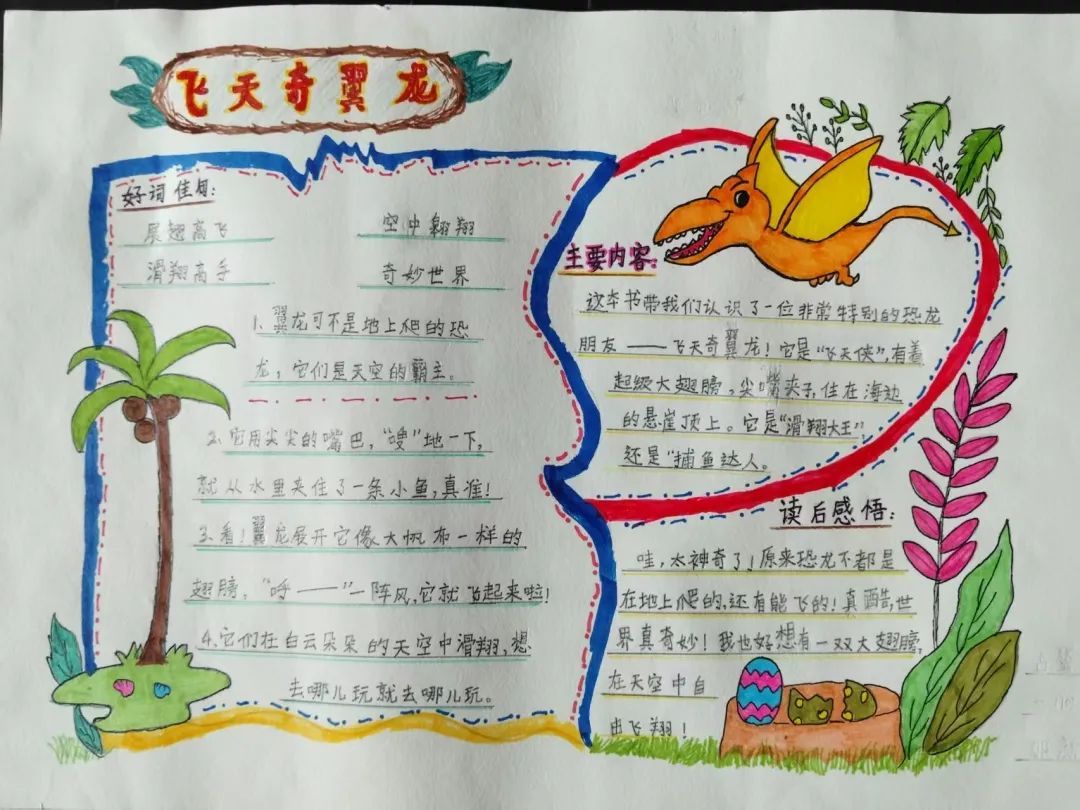 飞天奇翼龙
好词佳句:
展翅高飞 空中翱翔
滑翔高手 奇妙世界
1、翼龙可不是地上爬的恐
龙，它们是天空的霸主。
2、它用尖尖的嘴巴，“嗖”地一下，
就从水里夹住了一条小鱼,真准！
3、看！翼龙展开它像大帆布一样的
翅膀，“呼——”一阵风,它就飞起来啦！
4、它们在白云朵朵的天空中滑翔,想
去哪儿玩就去哪儿玩。
主要内容:
这本书带我们认识了一位非常特别的恐龙
朋友——飞天奇翼龙！它是“飞天侠”,有着
超级大翅膀，尖嘴夹子,住在海边
的悬崖顶上。它是“滑翔大王”
还是“捕鱼达人。
读后感悟:
哇，太神奇了！原来恐龙不都是
在地上爬的,还有能飞的！真酷,世
界真奇妙！我也好想有一双大翅膀,
在天空中自
由飞翔！